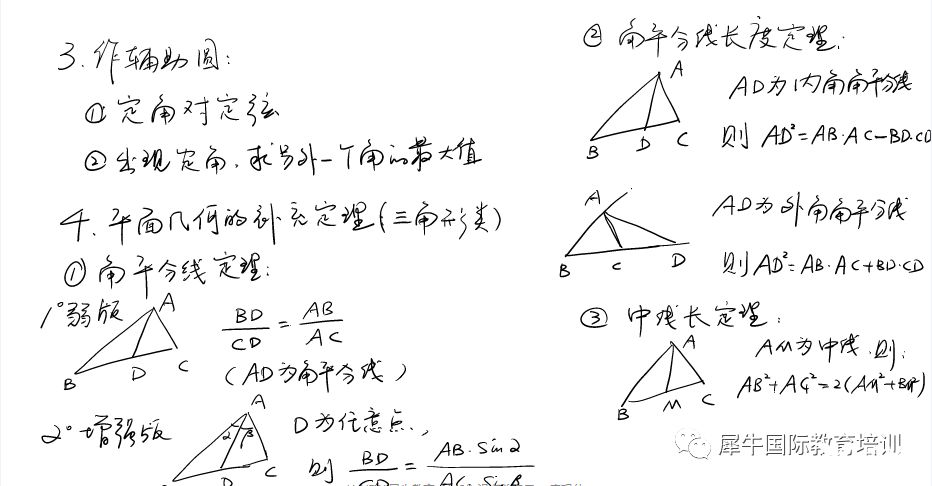 3. 作辅助圆:
① 定角对定弦
② 出现定角, 求另外一个角的最大值
4. 平面几何的补充定理(三角形类)
① 角平分线定理:
1° 弱版
A
B
D
C
BD/CD = AB/AC
(AD为角平分线)
2° 增强版
A
α β
D
C
D为任意点,
则 BD/CD = AB·sinα/AC·sinβ
② 角平分线长度定理:
A
B
D
C
AD为内角角平分线
则 AD²=AB·AC-BD·CD
A
B
C
D
AD为外角角平分线
则AD²=AB·AC+BD·CD
③ 中线长定理:
A
B
M
C
AM为中线,则:
AB²+AC²=2(AM²+BM²)
犀牛国际教育培训